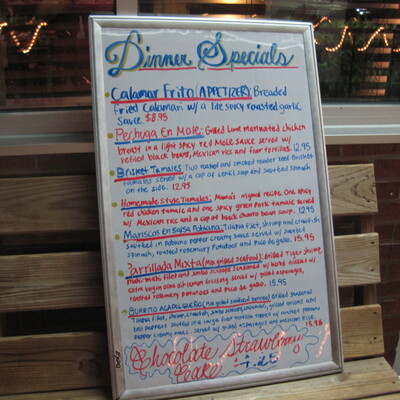 Dinner Specials
Calamar Frito (APPETIZER): Breaded
fried Calamari w/ a lite spicy roasted garlic
Sauce $8.95
Pechuga En Mole: Grilled Lime marinated chicken
breast in a light spicy red Mole sauce served w/
refried black beans, Mexican rice and flour tortillas. 12.95
Brisket Tamales: Two roasted and smoked tender beef Brisket
tamales served w/ a cup of lentil soup and sauteed spinach
on the side. 12.95
Homemade Style Tamales: Mama's original recipe. One spicy
red chicken tamale and one spicy green pork tamale served
w/ Mexican rice and a cup of black charro bean soup. 12.95
Mariscos En Salsa Poblana: Tilapia filet, shrimp and crawfish
sauteed in Poblano pepper creamy sauce served w/ sauteed
spinach, roasted rosemary potatoes and pico de gallo. 15.95
Parrillada Mixta (Mix grilled seafood): Grilled Tiger shrimp,
Mahi-mahi filet and Jumbo scallops seasoned w/ herbs
extra virgin olive oil-lemon dressing served w/ grilled asparagus,
roasted rosemary potatoes and pico de gallo. 15.95
Burrito Acapulqueño (Mix grilled seafood burrito): Grilled seasoned
Tilapia filet, shrimp, crawfish, grilled onions and
bell peppers stuffed in a large flour tortilla topped w/ poblano
pepper creamy sauce served w/ grilled asparagus and Mexican rice. 15.95
Chocolate Strawberry
Cake